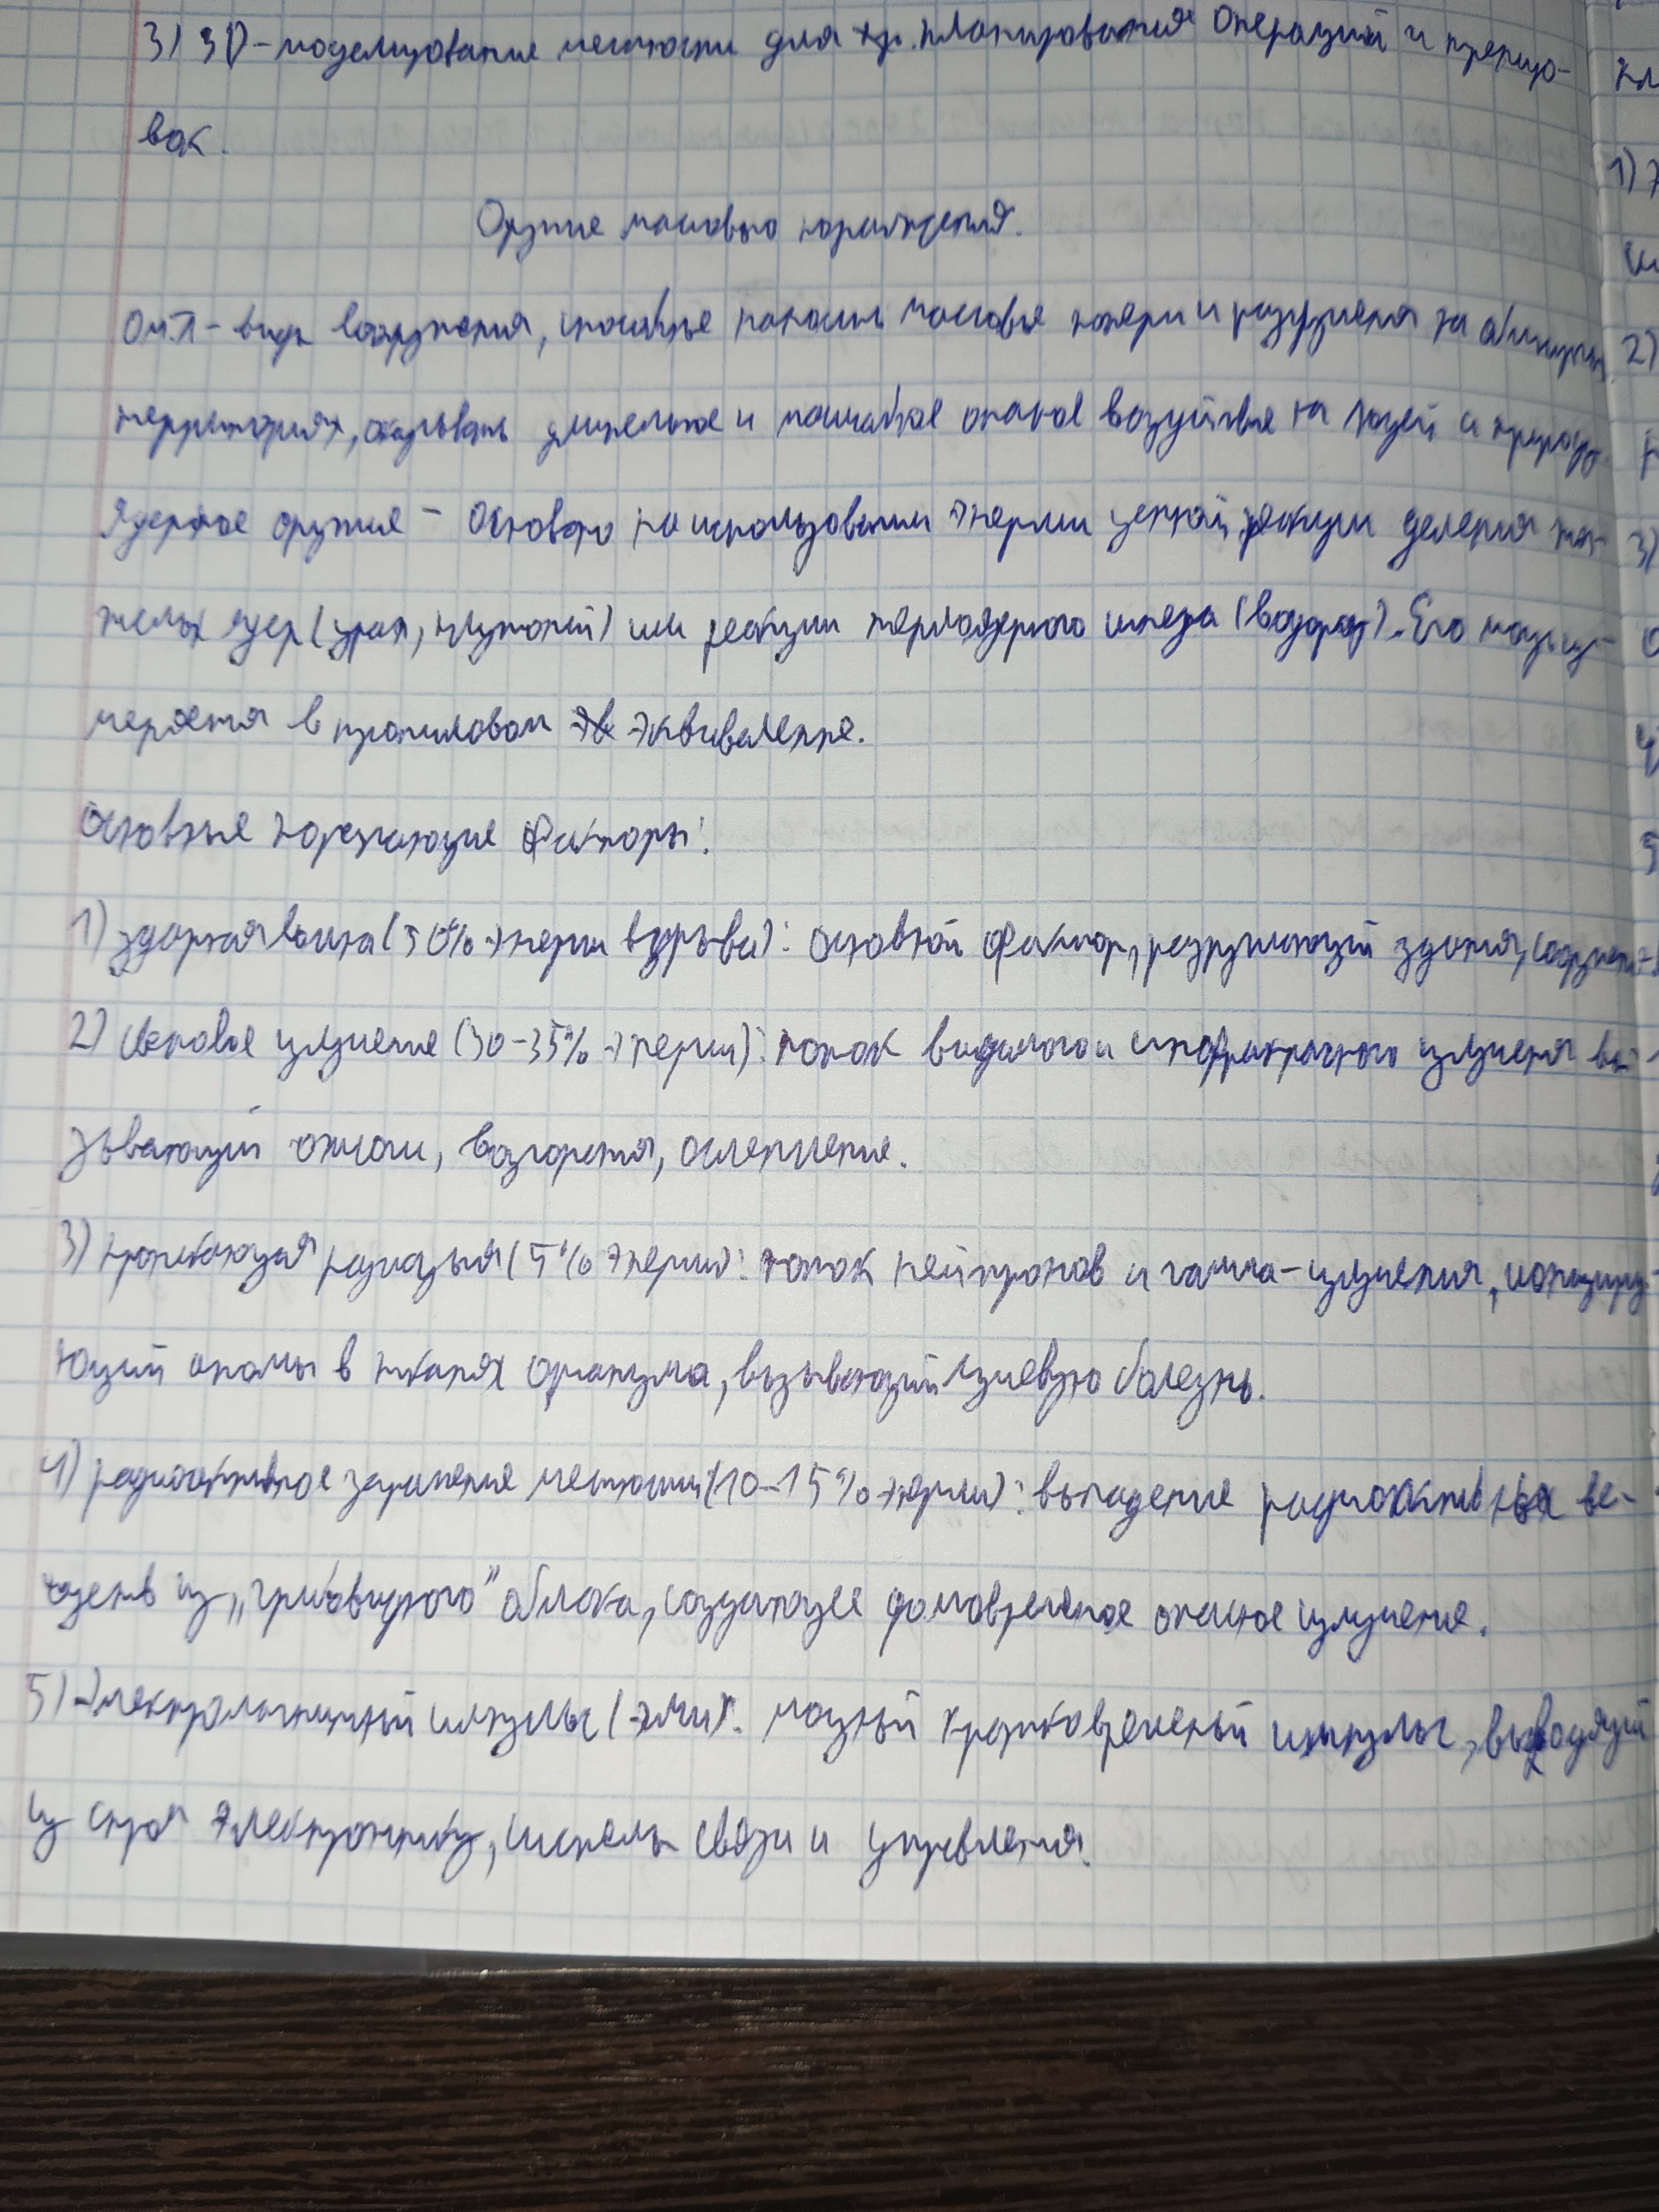 3) 3D-моделирование местности для тр. планирования операций и трениро-
вок.
Оружие массового поражения.
ОМП - виды вооружения, способные наносить массовые потери и разрушения на обширных
территориях, оказывать длительное и масштабное опасное воздействие на людей и природу.
Ядерное оружие - основано на использовании энергии цепной реакции деления тя-
желых ядер (уран, плутоний) или реакции термоядерного синтеза (водород). Его мощь из-
меряется в тротиловом эквиваленте.
Основные поражающие факторы:
1) ударная волна (50% энергии взрыва): основной фактор, разрушающий здания,
2) световое излучение (30-35% энергии): поток видимого и инфракрасного излучения вы-
зывающий ожоги, возгорания, ослепление.
3) проникающая радиация (5% энергии): поток нейтронов и гамма-излучения, ионизиру-
ющий атомы в тканях организма, вызывающий лучевую болезнь.
4) радиоактивное заражение местности (10-15% энергии): выпадение радиоактивных ве-
ществ из "грибовидного" облака, создающее долговременное опасное излучение.
5) Электромагнитный импульс (ЭМИ): мощный кратковременный импульс, выводящий
из строя электронику, системы связи и управления.
1)
2)
3)